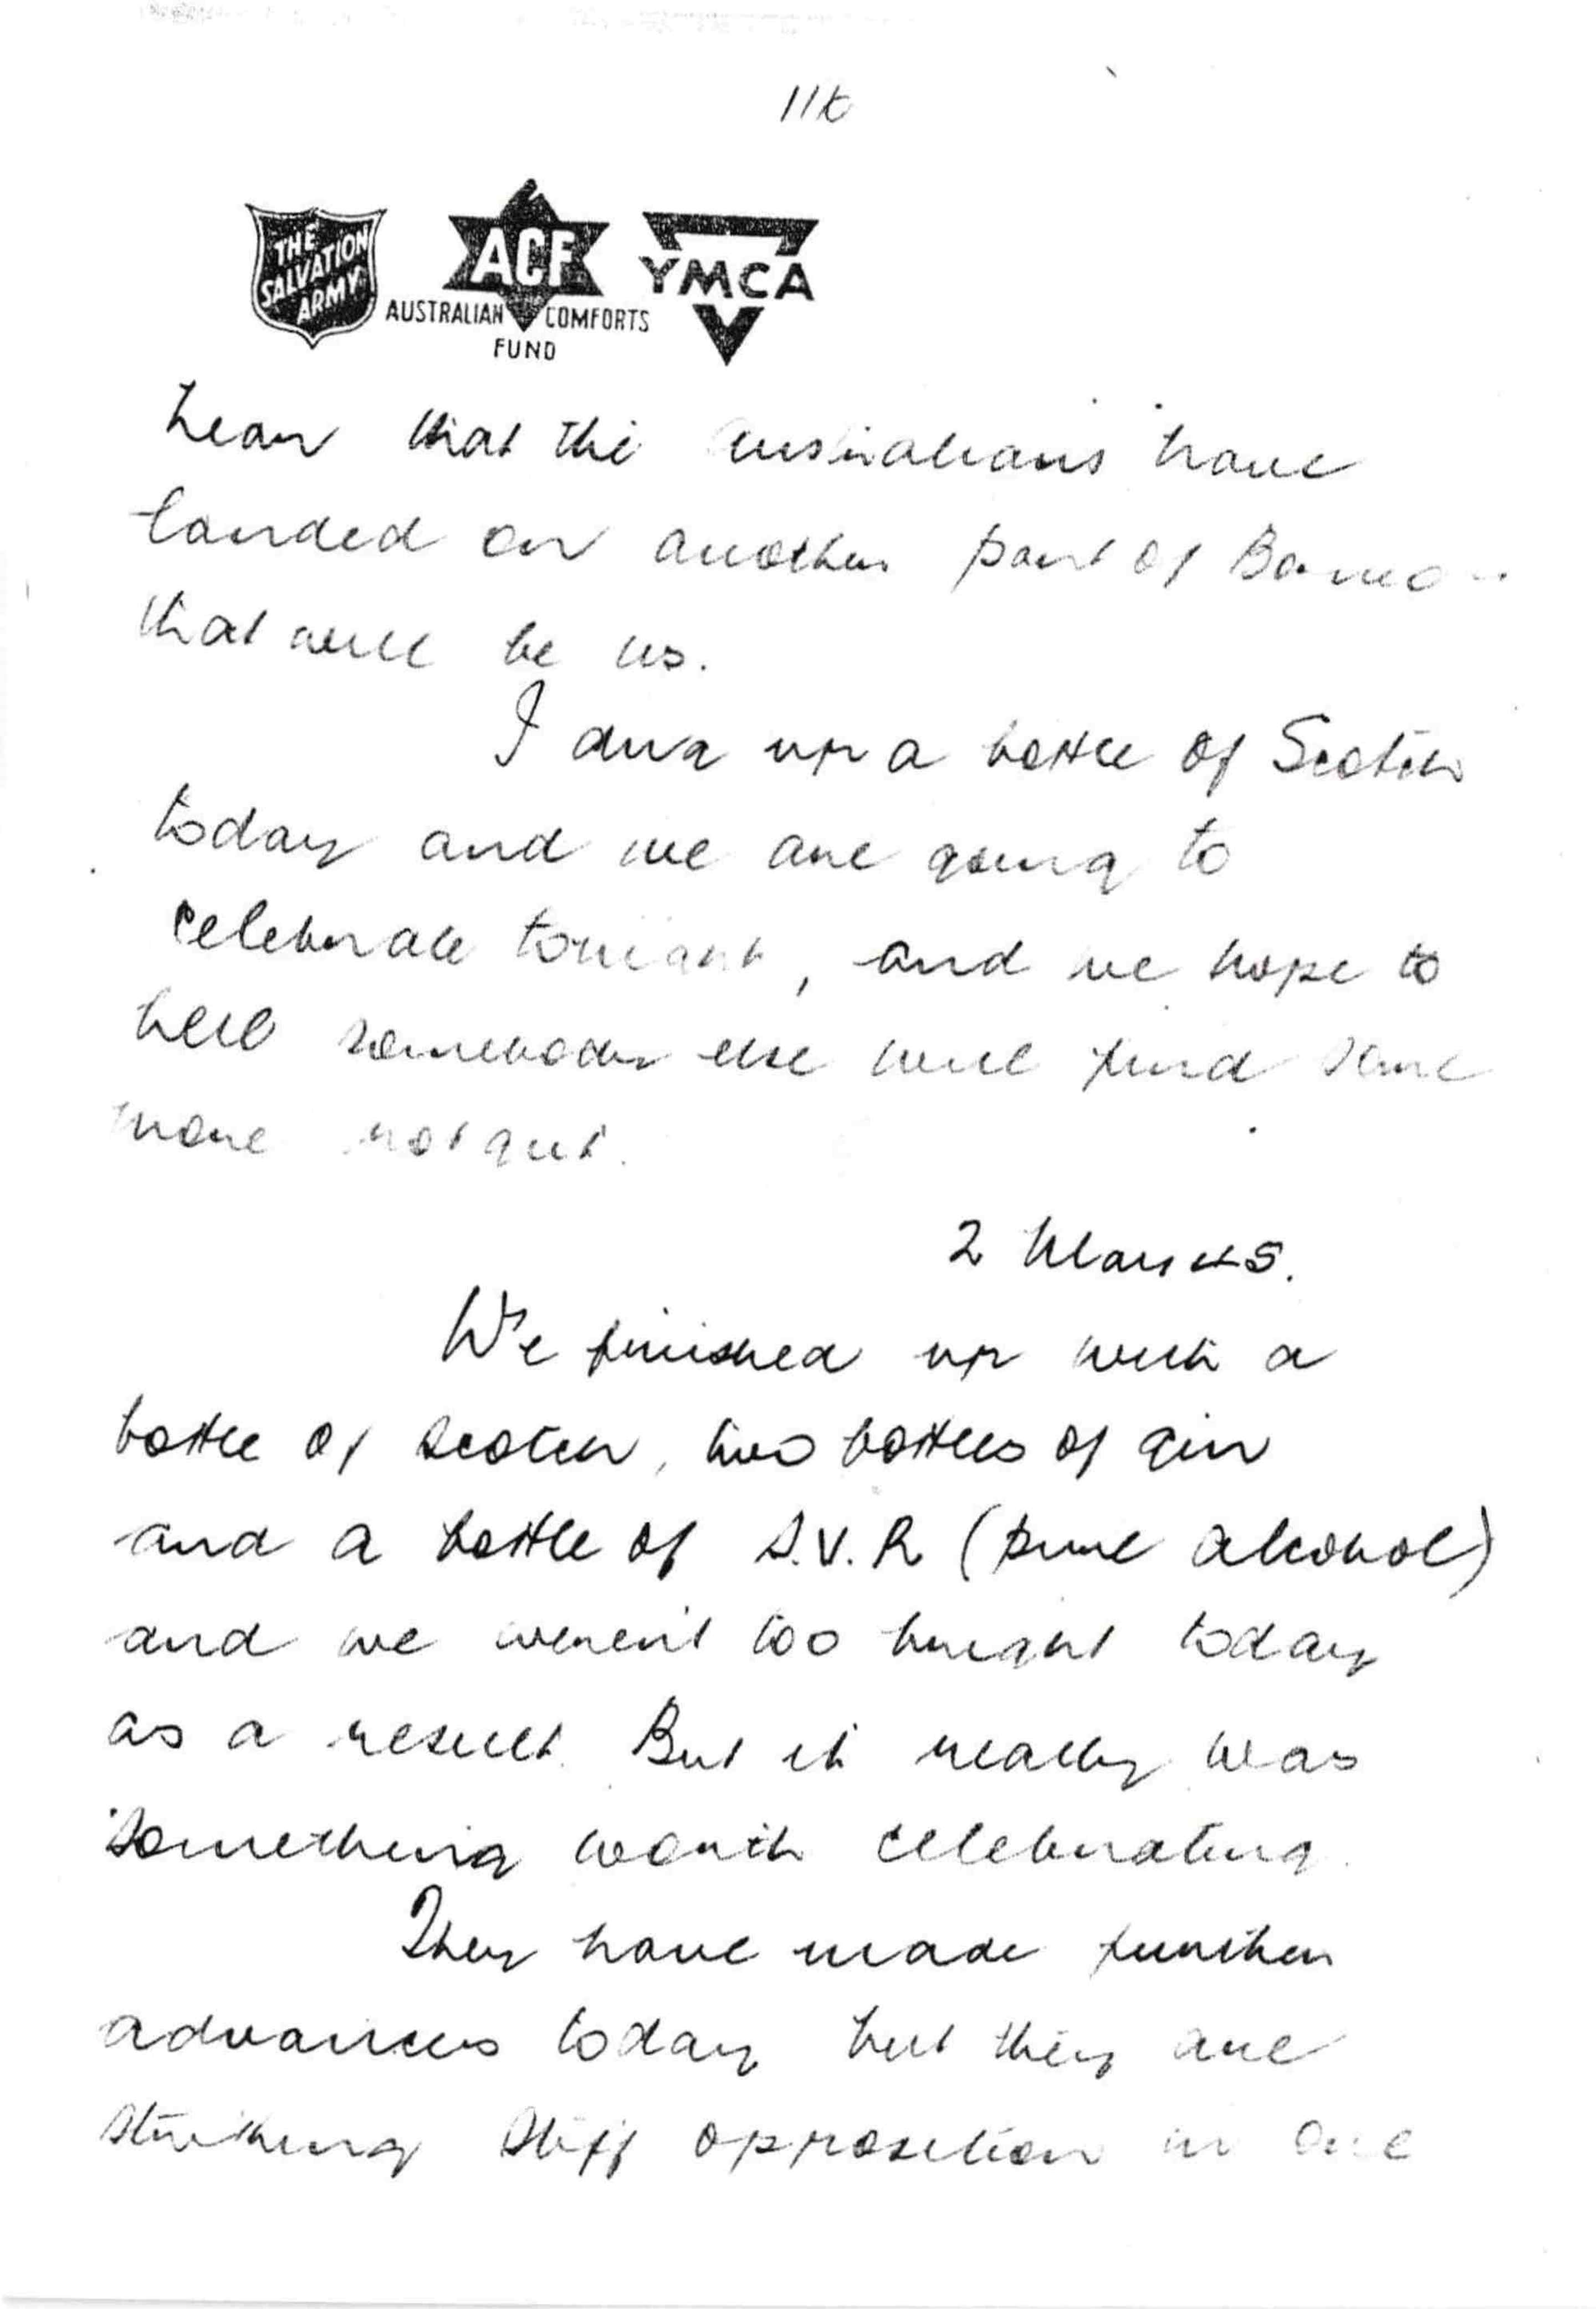 11k
THE SALVATION ARMY
ACF
AUSTRALIAN COMFORTS FUND
YMCA
hear that the Australians have
landed on another part of Borneo -
that will be us.
I dug up a bottle of Scotch
today and we are going to
celebrate tonight, and we hope to
hell somebody else will find some
more not gut.
2 May 45.
We finished up with a
bottle of Scotch, two bottles of gin
and a bottle of S.V.R (pure alcohol)
and we weren't too bright today
as a result. But it really was
something worth celebrating.
They have made further
advances today but they are
striking stiff opposition in one